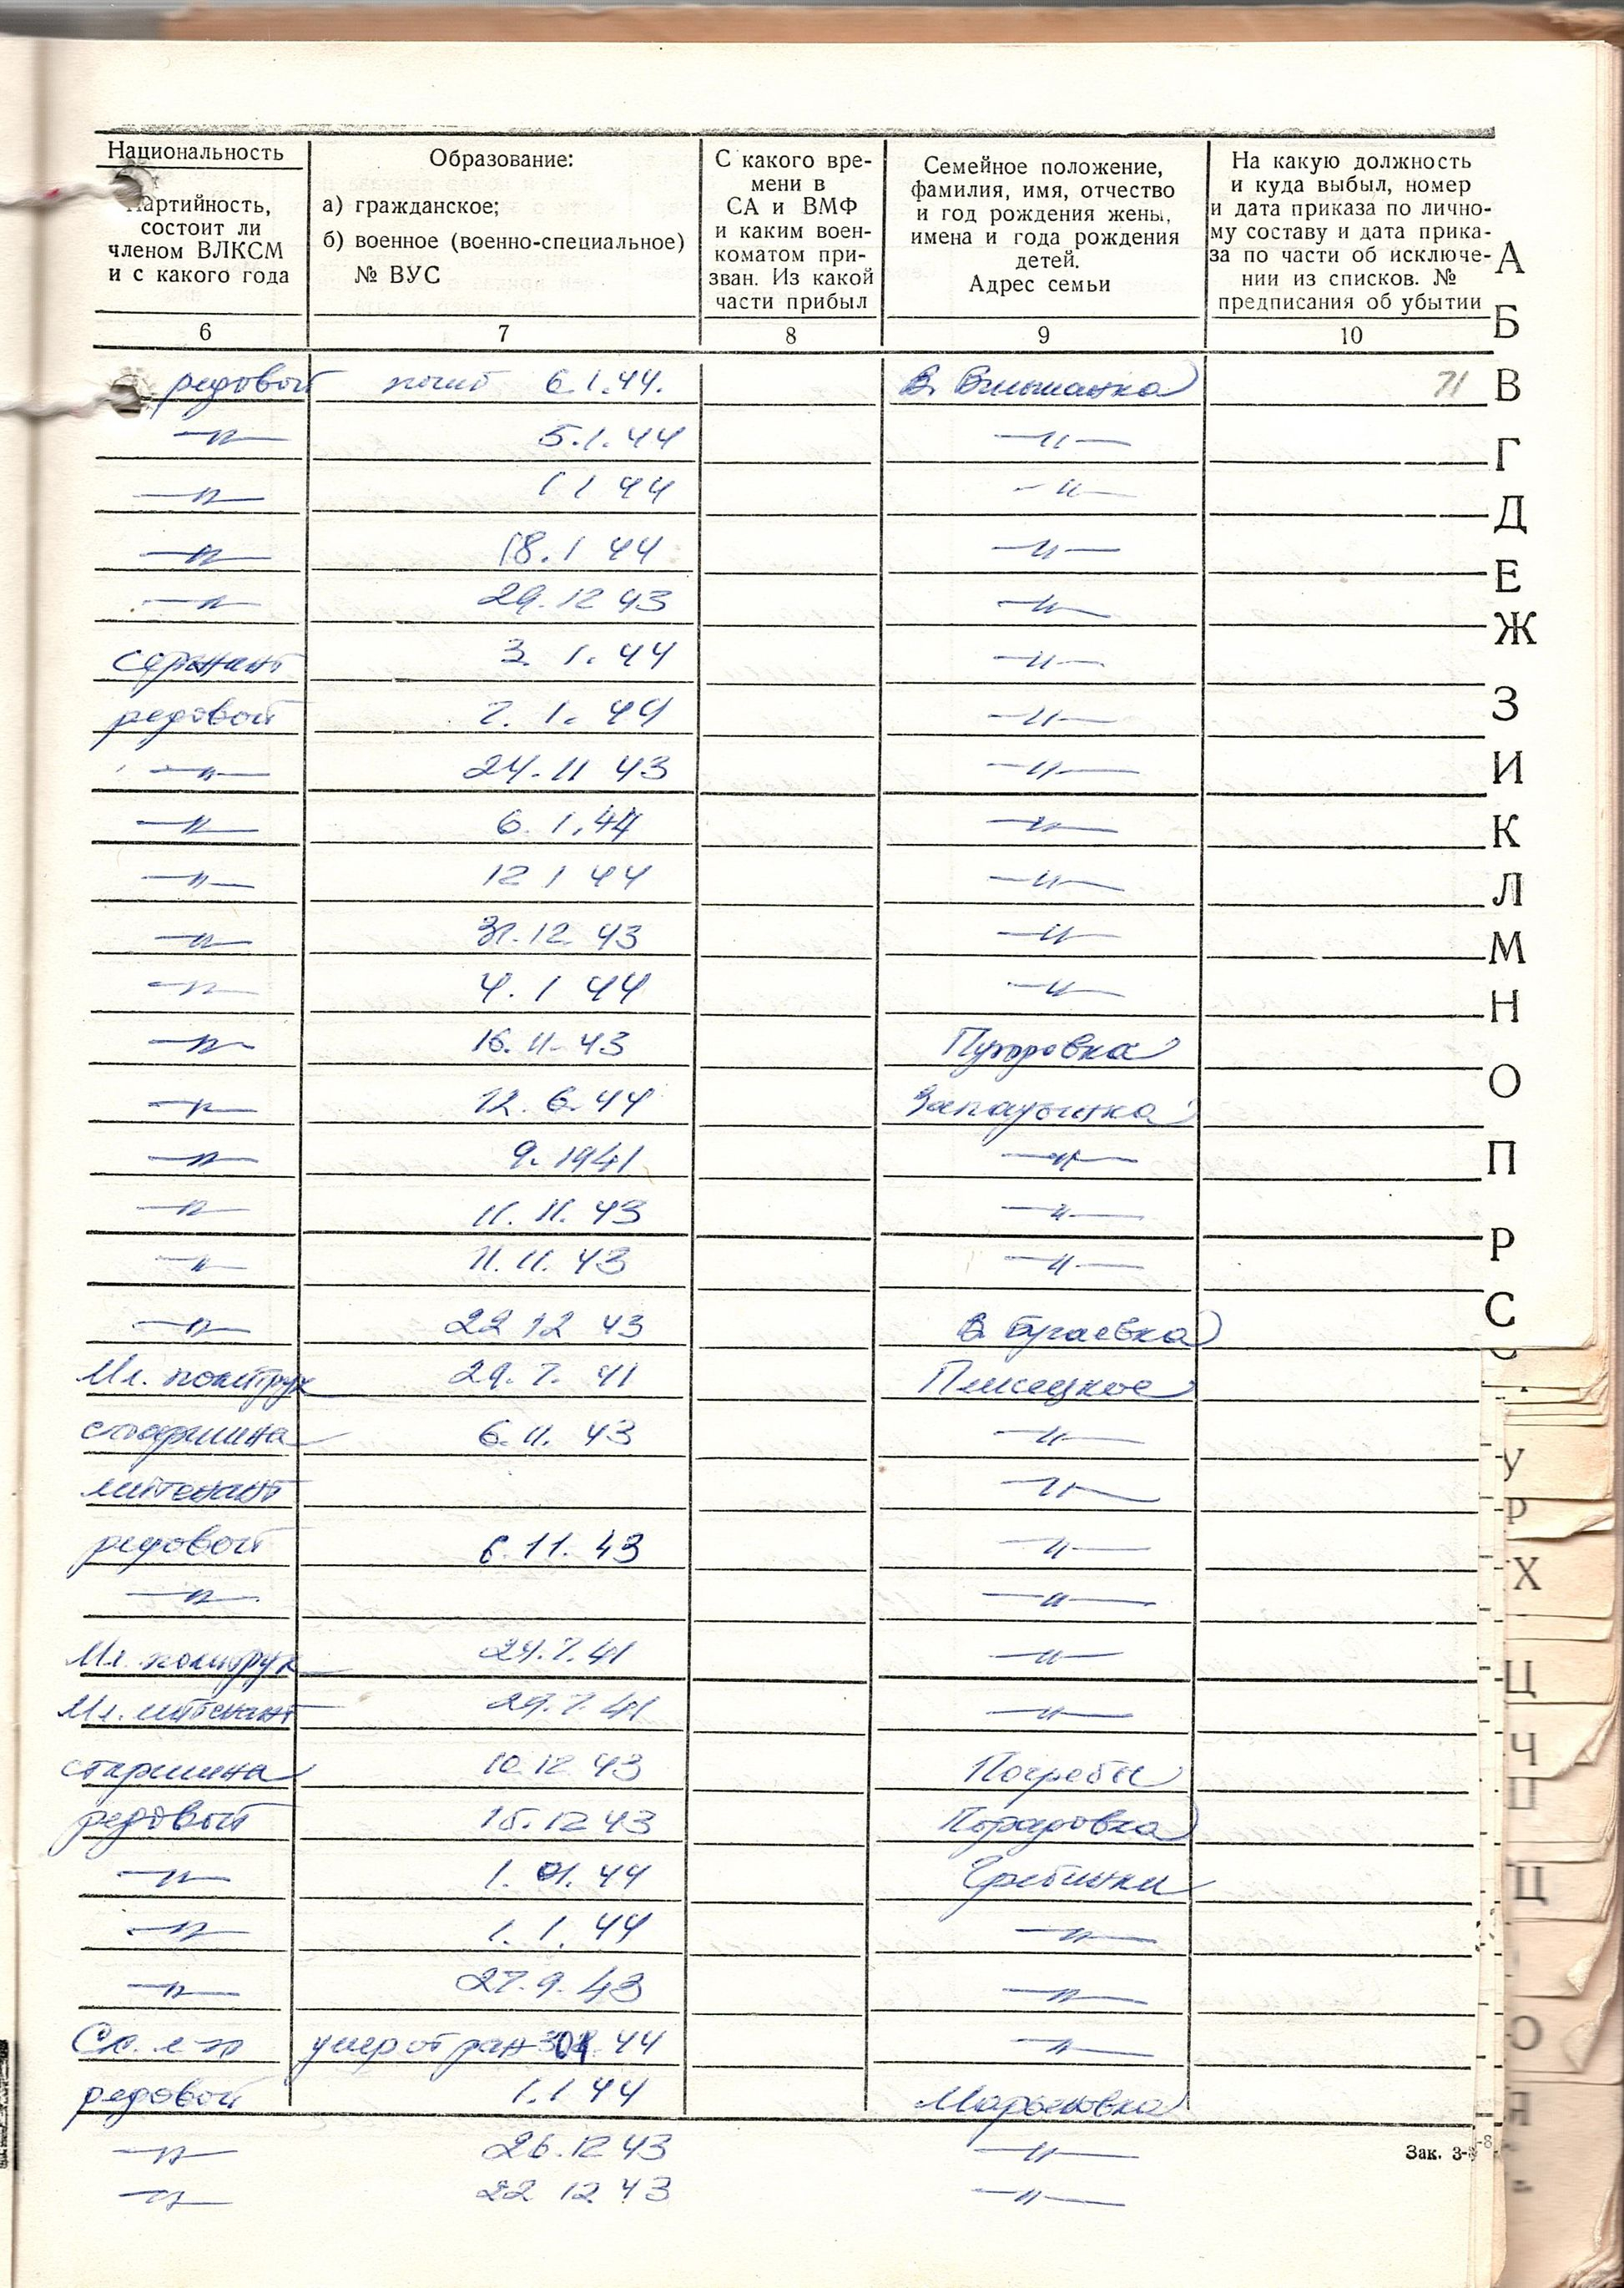 Национальность
Партийность,
состоит ли
членом ВЛКСМ
и с какого года
Образование:
а) гражданское;
б) военное (военно-специальное)
№ ВУС
С какого вре-
мени в
СА и ВМФ
и каким воен-
коматом при-
зван. Из какой
части прибыл
Семейное положение,
фамилия, имя, отчество
и год рождения жены,
имена и года рождения
детей.
Адрес семьи
На какую должность
и куда выбыл, номер
и дата приказа по лично-
му составу и дата прика-
за по части об исключе-
нии из списков. №
предписания об убытии
6 7 8 9 10
редовой погиб 6.1.44. В. Вильшанка 71
—"— 5.1.44 —"—
—"— 1 1 44 —"—
—"— 18.1 44 —"—
—"— 29.12 43 —"—
сержант 3. 1. 44 —"—
редовой 7. 1. 44 —"—
—"— 24.11 43 —"—
—"— 6.1.44 —"—
—"— 12 1 44 —"—
—"— 31.12. 43 —"—
—"— 4.1 44 —"—
—"— 16.11.43
—"— 12.6.44
—"— 9.1941 —"—
—"— 11.11.43 —"—
—"— 11.11.43 —"—
—"— 22 12 43 В. Бугаевка
Мл. политрук 29.7.41 Плисецкое
старшина 6.11.43 —"—
литенант —"—
редовой 6.11.43 —"—
—"— —"—
Мл. политрук 29.7.41 —"—
Мл. литенант 29.7.41 —"—
старшина 10.12 43 Погребы
редовой 15.12 43
—"— 1.01.44 Гребинки
—"— 1.1.44 —"—
—"— 27.9.43 —"—
Ст. л-т умер от ран 44 —"—
редовой 1.1 44 Марьяновка
—"— 26.12 43 —"—
—"— 22 12 43 —"—
Зак. 3-
А
Б
В
Г
Д
Е
Ж
З
И
К
Л
М
Н
О
П
Р
С
У
Р
Х
Ц
Ч
Ц
О
Я